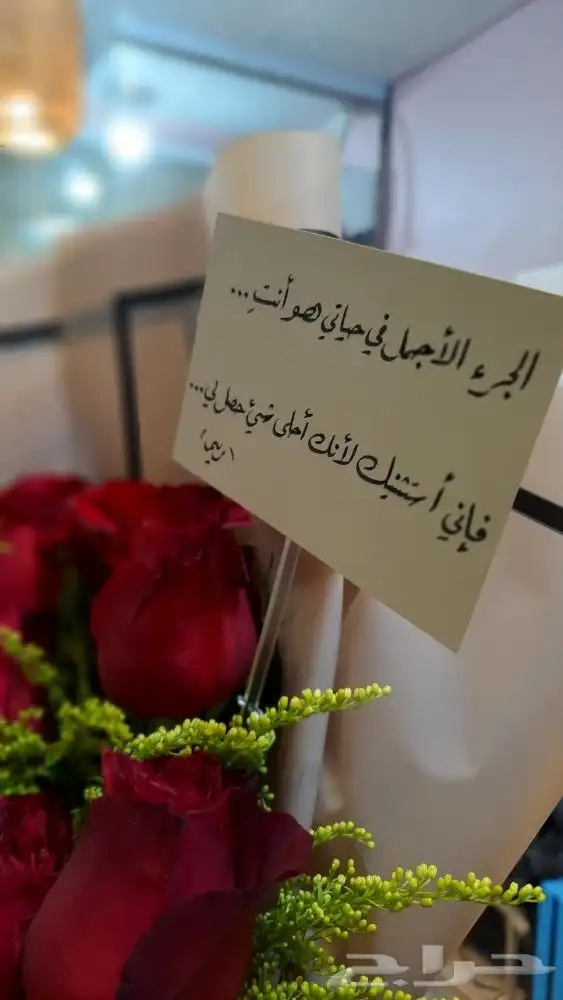 الجزء الأجمل في حياتي هو أنتِ...
فإني أستثنيك لأنك أحلى شيء حصل لي...
حراج